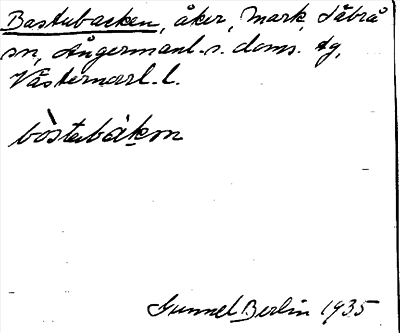 Bastubacken, åker, Mark, Säbrå
sn, Ångermanl. s. doms. tg,
Västernorrl. l.
bòstabàkɳ
Gunnel Berlin 1935